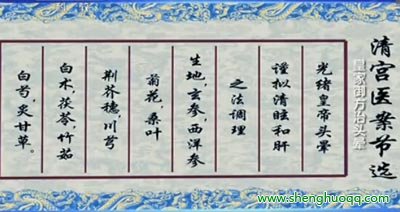 清宫医案节选
皇家御方治头晕
光绪皇帝头晕
谨拟清眩和肝
之法调理
生地,玄参,西洋参
菊花,桑叶
荆芥穗,川芎
白术,茯苓,竹茹
白芍,炙甘草。
www.shenghuoqq.com